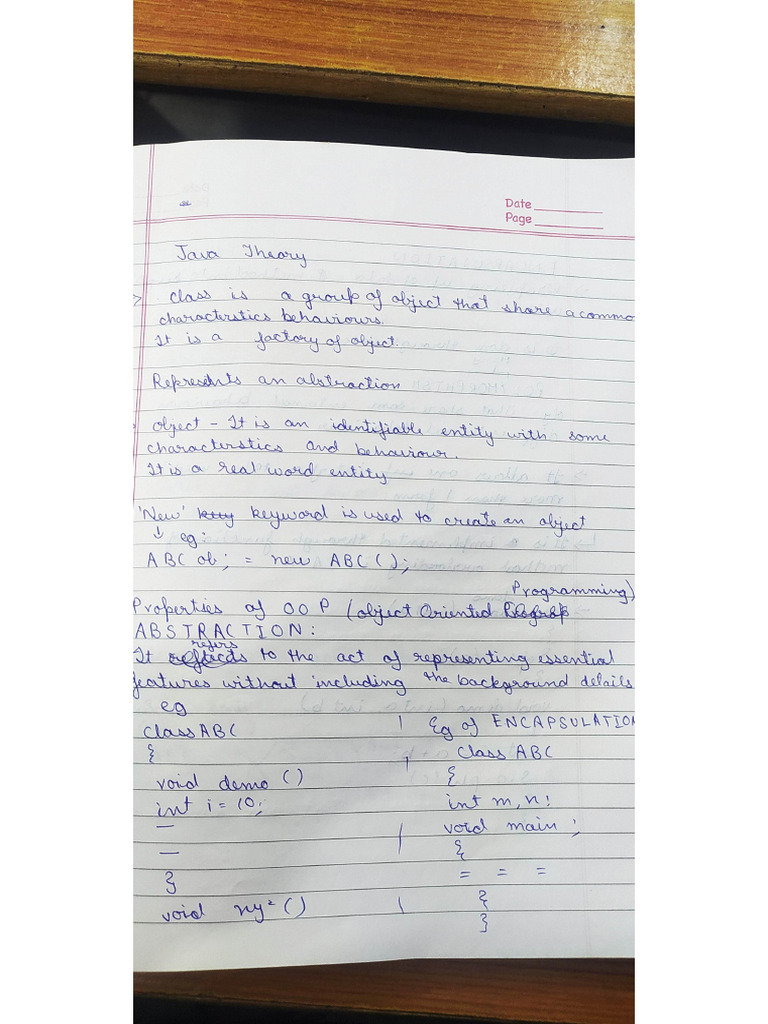 Date
Page
Java Theory
> Class is a group of object that share a commo
characterstics behaviours.
It is a factory of object.
Represents an abstraction
object - It is an identifiable entity with some
characterstics and behaviour.
It is a real word entity
'New' keyword is used to create an object
↓ eg:
ABC ob; = new ABC();
Programming)
Properties of OOP (object Oriented
ABSTRACTION:
refers
It to the act of representing essential
features without including the background details
eg
class ABC
{
void demo ()
int i = 10;
—
—
}
void xy² ()
Eg of ENCAPSULATION
Class ABC
{
int m, n;
void main ;
{
= = =
{
}